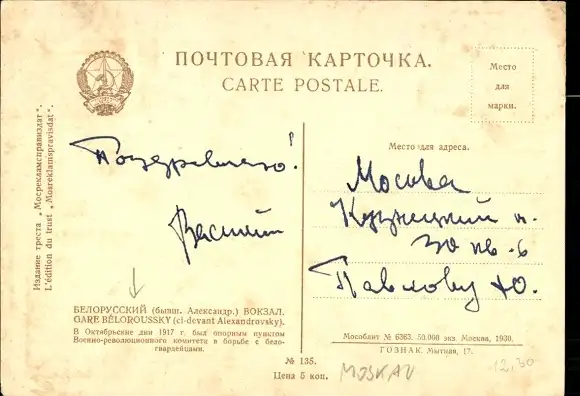 ПОЧТОВАЯ КАРТОЧКА.
CARTE POSTALE.
Место
для
марки.
Издание треста „Мосрекламсправиздат“.
L'édition du trust „Mosreklamspravisdat“.
Поздравляю!
Василий
Место для адреса.
Москва
Кузнецкий
30 кв. 6
Павлову Ю.
БЕЛОРУССКИЙ (бывш. Александр.) ВОКЗАЛ.
GARE BÉLOROUSSKY (ci-devant Alexandrovsky).
В Октябрьские дни 1917 г. был опорным пунктом
Военно-революционного комитета в борьбе с бело-
гвардейцами.
Мособлит № 6363. 50.000 экз. Москва, 1930.
ГОЗНАК. Мытная, 17.
№ 135.
Цена 5 коп.
MOSKAU
12,30